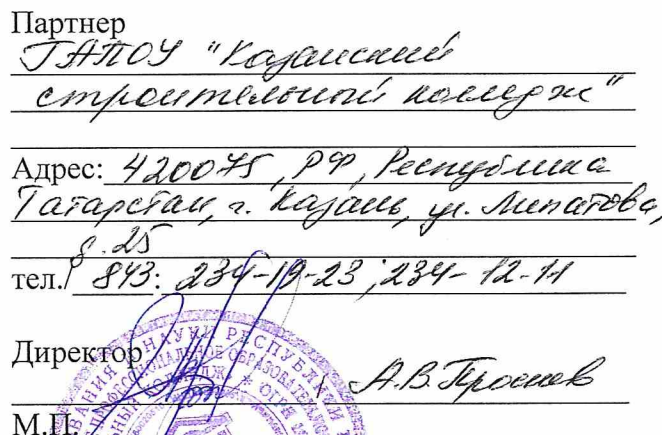 Партнер
ГАПОУ "Казанский
строительный колледж"
Адрес: 420075, РФ, Республика
Татарстан, г. Казань, ул. Липатова,
д. 25
тел./ 843: 234-19-23; 234-12-11
Директор
А.В.
М.П.
НАУКИ РЕСПУБЛИКИ